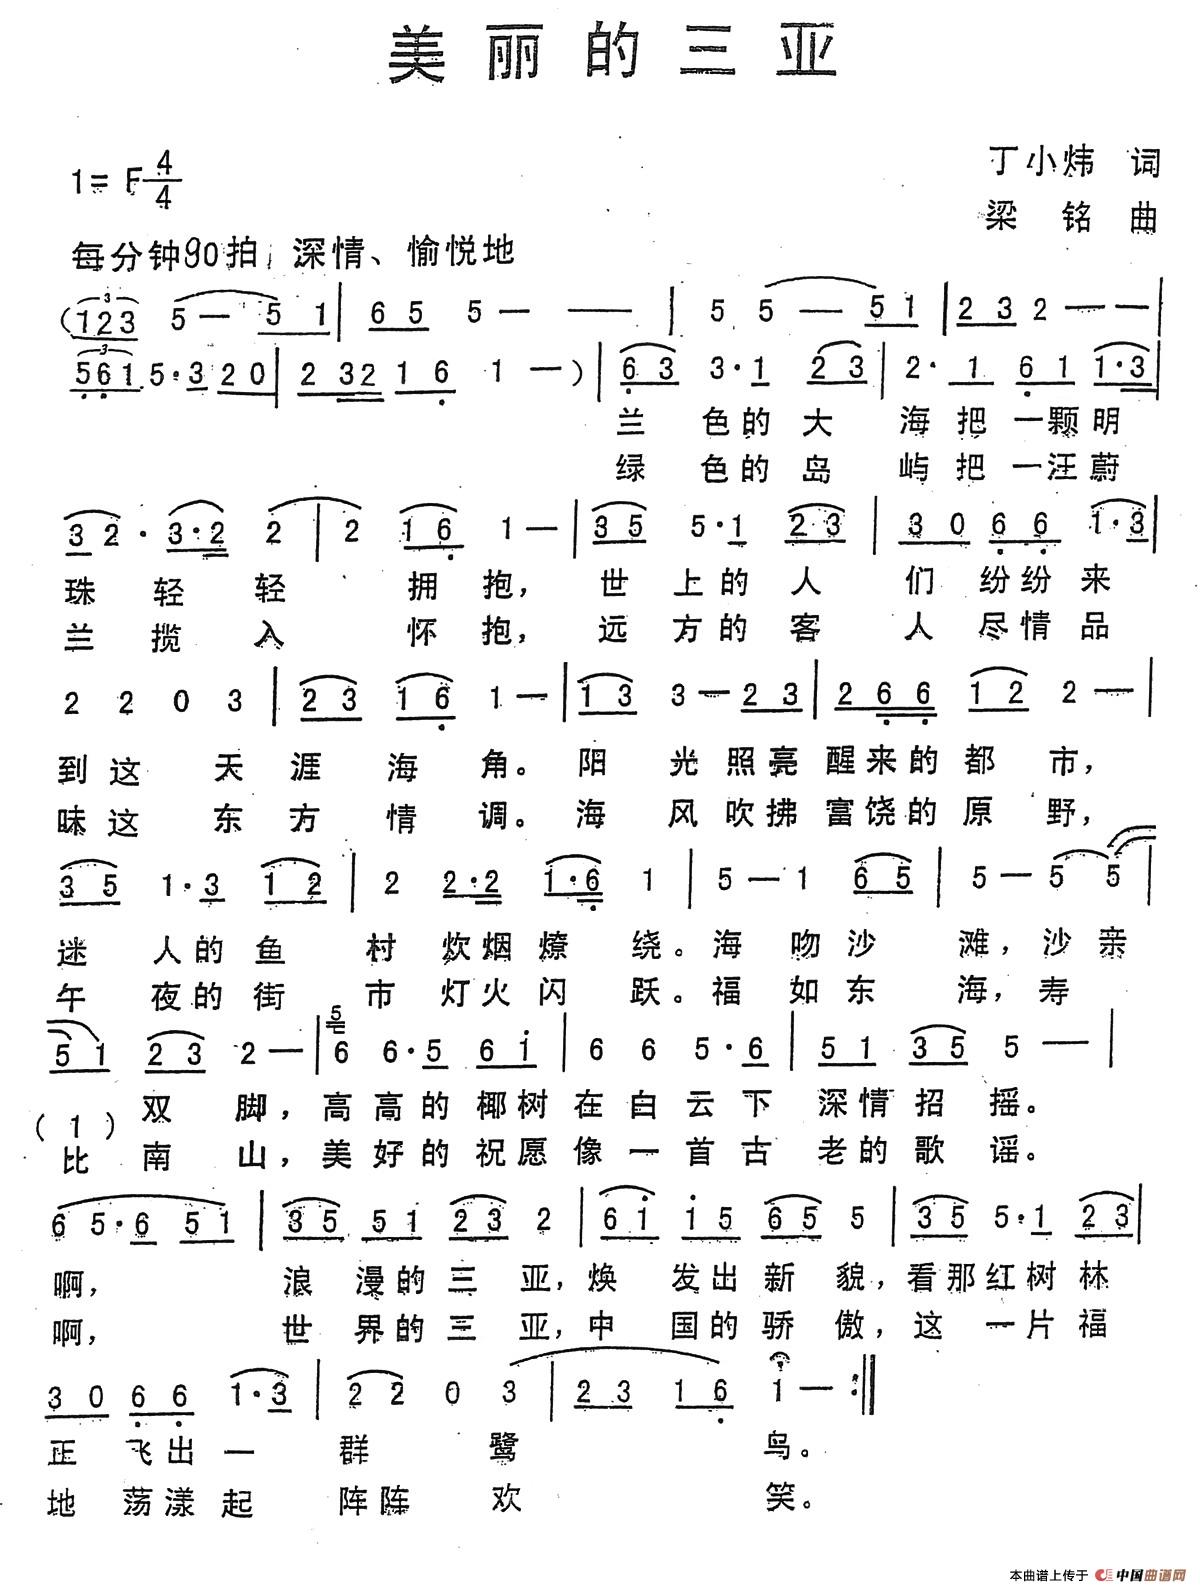 美丽的三亚
1=F 4/4
丁小炜 词
梁铭 曲
每分钟90拍 深情、愉悦地
(123 5 — 5 1 | 6 5 5 — — | 5 5 — 5 1 | 2 3 2 — — |
561 5·3 2 0 | 2 32 1 6 1 — ) | 6 3 3·1 2 3 | 2· 1 6 1 1·3 |
兰 色的大 海把一颗明
绿 色的岛 屿把一汪蔚
3 2· 3·2 2 | 2 1 6 1 — | 3 5 5·1 2 3 | 3 0 6 6 1·3 |
珠 轻 轻 拥 抱, 世 上的人 们 纷纷来
兰 揽 入 怀 抱, 远 方的客 人 尽情品
2 2 0 3 | 2 3 1 6 1 — | 1 3 3 — 2 3 | 2 6 6 1 2 2 — |
到这 天 涯 海 角。 阳 光照亮 醒来的都 市,
味这 东 方 情 调。 海 风吹拂 富饶的原 野,
3 5 1·3 1 2 | 2 2·2 1·6 1 | 5 — 1 6 5 | 5 — 5 5 |
迷 人的鱼 村 炊烟燎 绕。海 吻沙 滩,沙亲
午 夜的街 市 灯火闪 跃。福 如东 海,寿
5 1 2 3 2 — | 5 6 6·5 6 1 | 6 6 5·6 | 5 1 3 5 5 — |
双 脚, 高高的椰树在白云下 深情招 摇。
( 1 )
比 南 山, 美好的祝愿像一首古 老的歌 谣。
6 5·6 5 1 | 3 5 5 1 2 3 2 | 6 1 1 5 6 5 5 | 3 5 5·1 2 3 |
啊, 浪 漫的三 亚,焕 发出新 貌,看那红树林
啊, 世 界的三 亚,中 国的骄 傲,这 一片福
3 0 6 6 1·3 | 2 2 0 3 | 2 3 1 6 1 — :||
正 飞出一 群 鹭 鸟。
地 荡漾起 阵阵 欢 笑。
本曲谱上传于 中国曲谱网